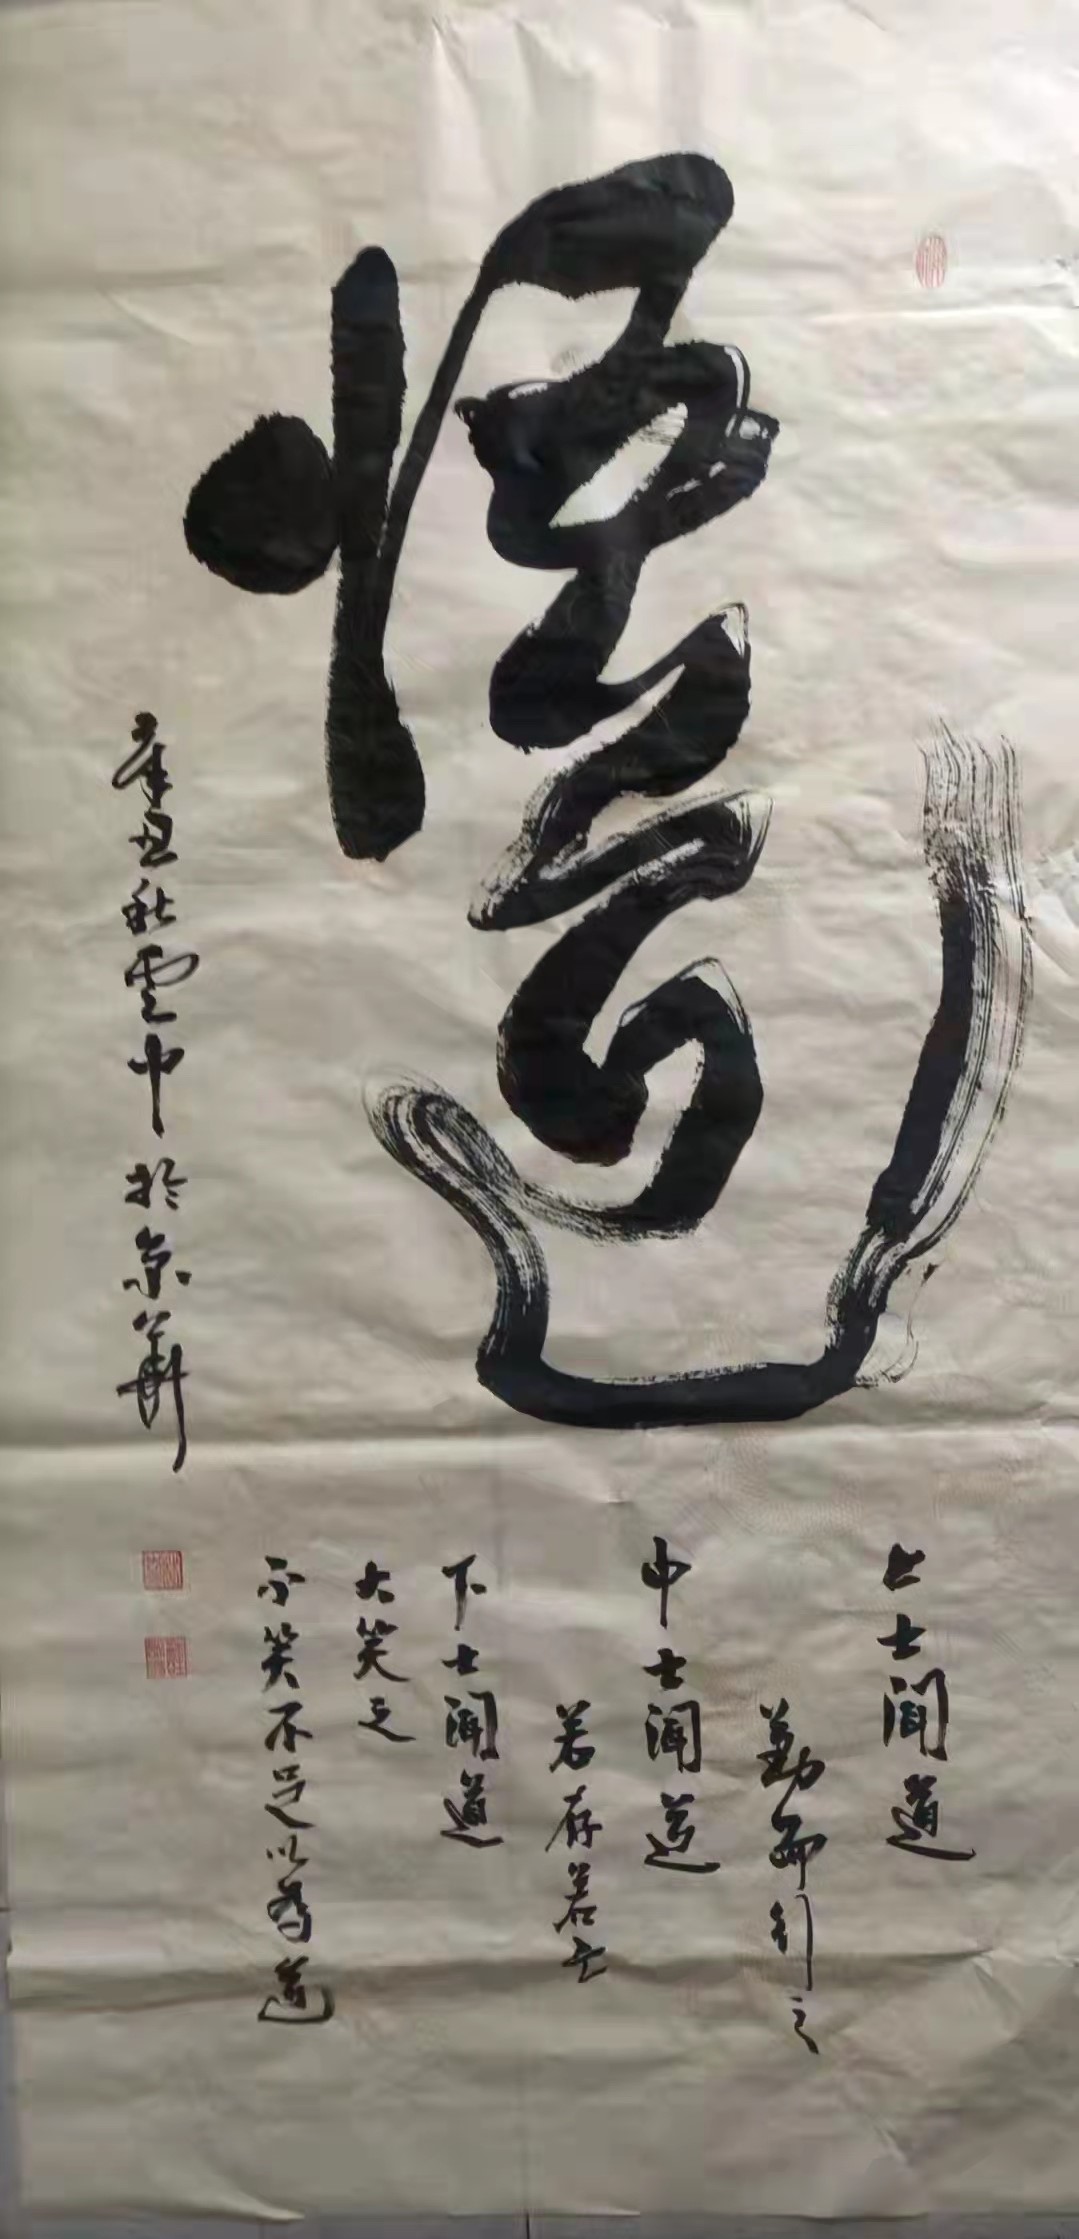 悟道
上士聞道
勤而行之
中士聞道
若存若亡
下士聞道
大笑之
不笑不足以為道
辛丑秋雲中於京華